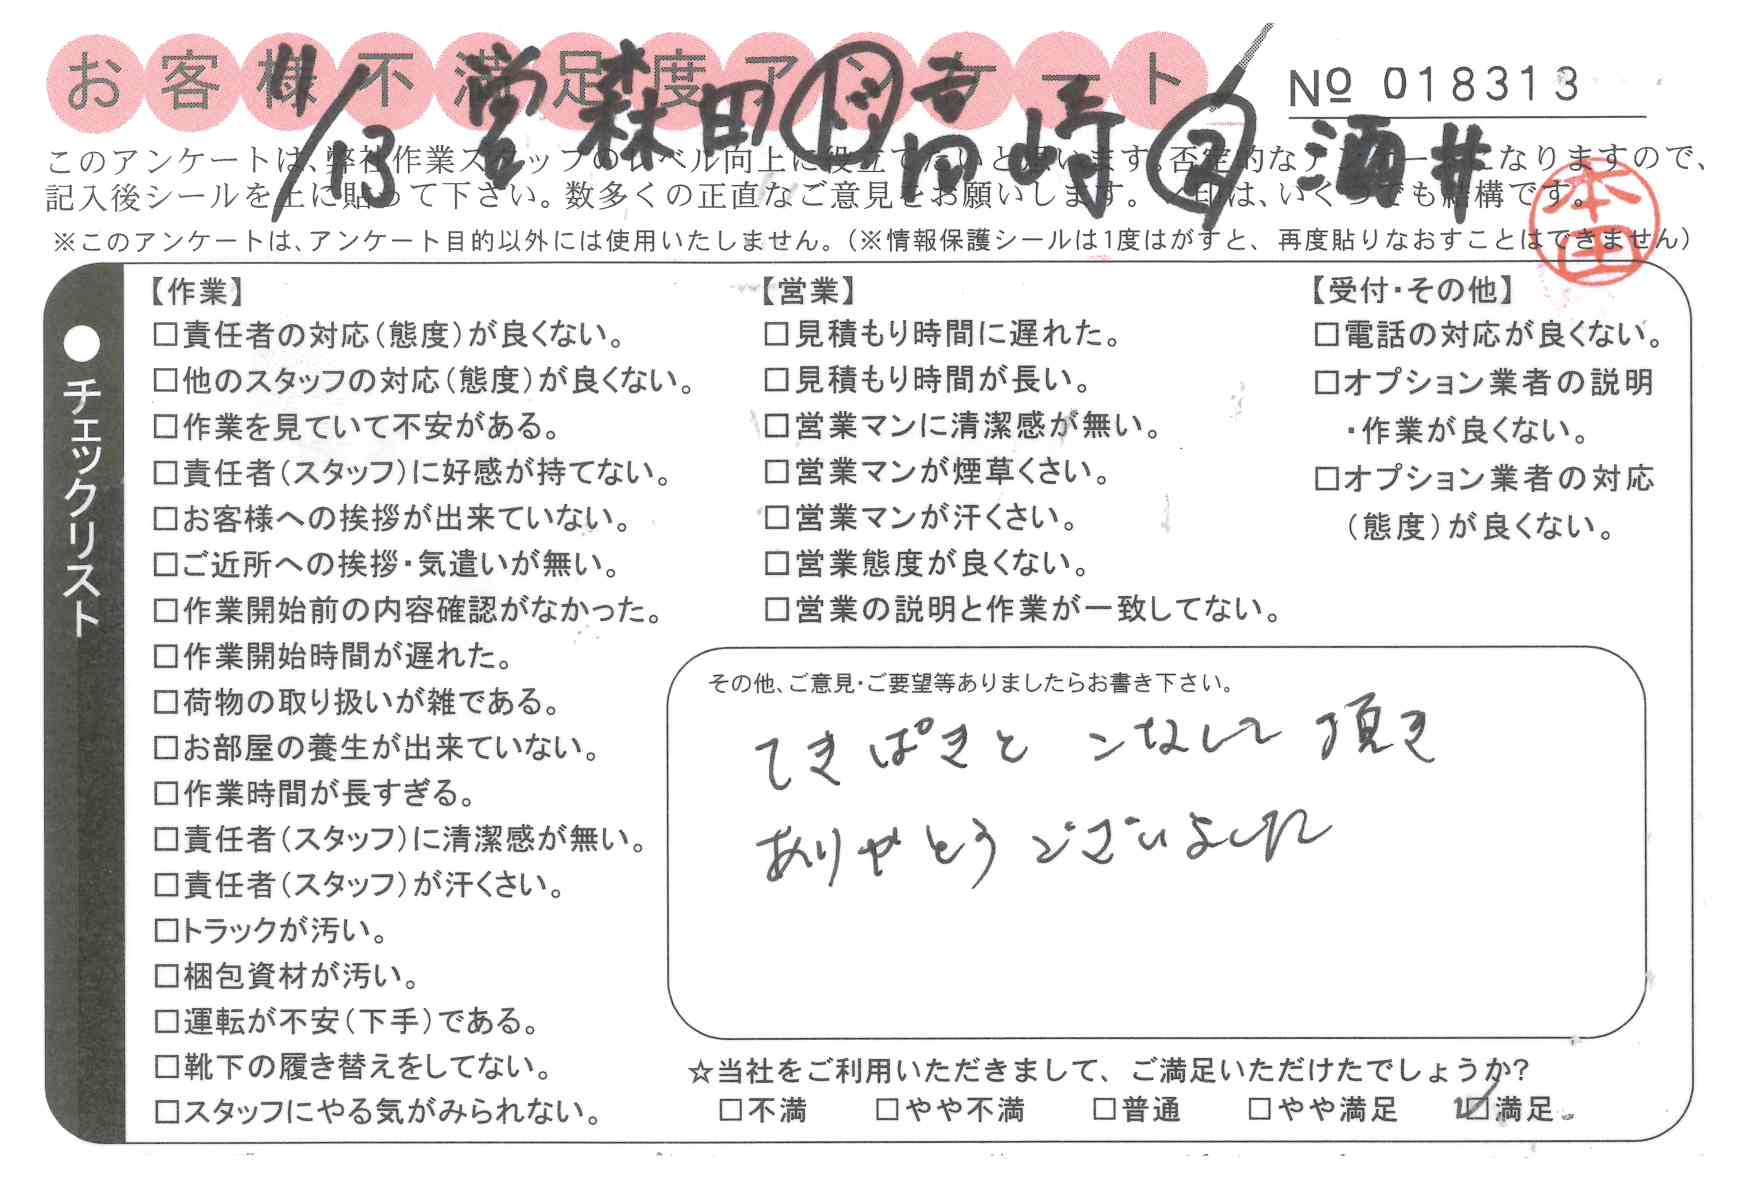 お客様不満足度アンケート
№ 018313
11/13 営 森田 ド 高崎 2 酒井
このアンケートは、弊社作業スタッフのレベル向上に役立てたいと思います。否定的なアンケートになりますので、
記入後シールを上に貼って下さい。数多くの正直なご意見をお願いします。✓印は、いくつでも結構です。
本田
※このアンケートは、アンケート目的以外には使用いたしません。（※情報保護シールは1度はがすと、再度貼りなおすことはできません）
●チェックリスト
【作業】
□責任者の対応（態度）が良くない。
□他のスタッフの対応（態度）が良くない。
□作業を見ていて不安がある。
□責任者（スタッフ）に好感が持てない。
□お客様への挨拶が出来ていない。
□ご近所への挨拶・気遣いが無い。
□作業開始前の内容確認がなかった。
□作業開始時間が遅れた。
□荷物の取り扱いが雑である。
□お部屋の養生が出来ていない。
□作業時間が長すぎる。
□責任者（スタッフ）に清潔感が無い。
□責任者（スタッフ）が汗くさい。
□トラックが汚い。
□梱包資材が汚い。
□運転が不安（下手）である。
□靴下の履き替えをしてない。
□スタッフにやる気がみられない。
【営業】
□見積もり時間に遅れた。
□見積もり時間が長い。
□営業マンに清潔感が無い。
□営業マンが煙草くさい。
□営業マンが汗くさい。
□営業態度が良くない。
□営業の説明と作業が一致してない。
【受付・その他】
□電話の対応が良くない。
□オプション業者の説明
・作業が良くない。
□オプション業者の対応
（態度）が良くない。
その他、ご意見・ご要望等ありましたらお書き下さい。
てきぱきと こなして 頂き
ありがとう ございました
☆当社をご利用いただきまして、ご満足いただけたでしょうか？
□不満 □やや不満 □普通 □やや満足 ☑満足